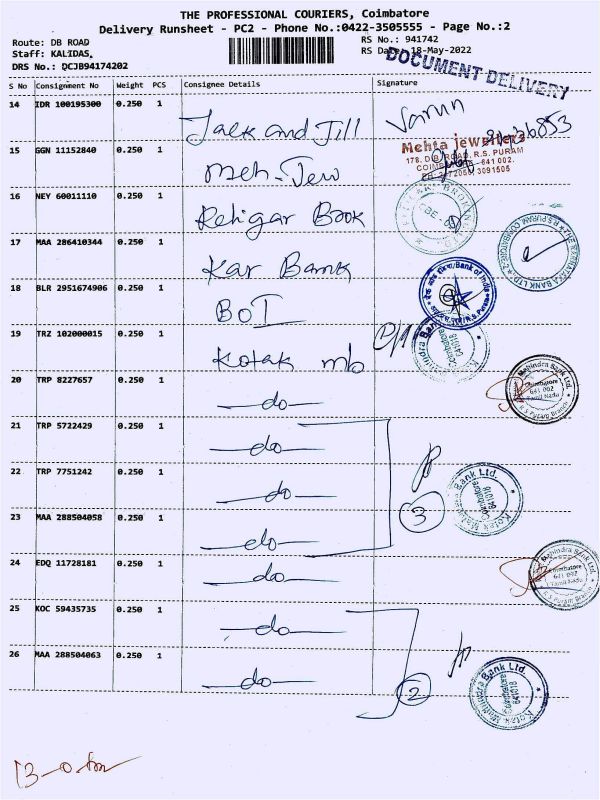 THE PROFESSIONAL COURIERS, Coimbatore
Delivery Runsheet - PC2 - Phone No.:0422-3505555 - Page No.:2
Route: DB ROAD
Staff: KALIDAS,
DRS No.: DCJB94174202
RS No.: 941742
RS Date: 18-May-2022
DOCUMENT DELIVERY
S No Consignment No Weight PCS Consignee Details Signature
14 IDR 100195300 0.250 1 Jack and Jill Varun
15 GGN 11152840 0.250 1 Meh-Jew
Mehta jewellers
178, D.B. ROAD, R.S. PURAM
COIMBATORE - 641 002.
16 NEY 60011110 0.250 1 Religar Brok
17 MAA 286410344 0.250 1 Kar Bank
18 BLR 2951674906 0.250 1 BOI
Bank of India
19 TRZ 102000015 0.250 1 Kotak mb
20 TRP 8227657 0.250 1 do
Mahindra Bank Ltd.
Coimbatore
641 002
Tamil Nadu
R.S Puram Branch
21 TRP 5722429 0.250 1 do
22 TRP 7751242 0.250 1 do
3
Kotak Mahindra Bank Ltd.
Coimbatore
641018
23 MAA 288504058 0.250 1 do
24 EDQ 11728181 0.250 1 do
Mahindra Bank Ltd.
Coimbatore
641 002
Tamil Nadu
R.S Puram Branch
25 KOC 59435735 0.250 1 do
26 MAA 288504063 0.250 1 do
2
Kotak Mahindra Bank Ltd.
Coimbatore
641018